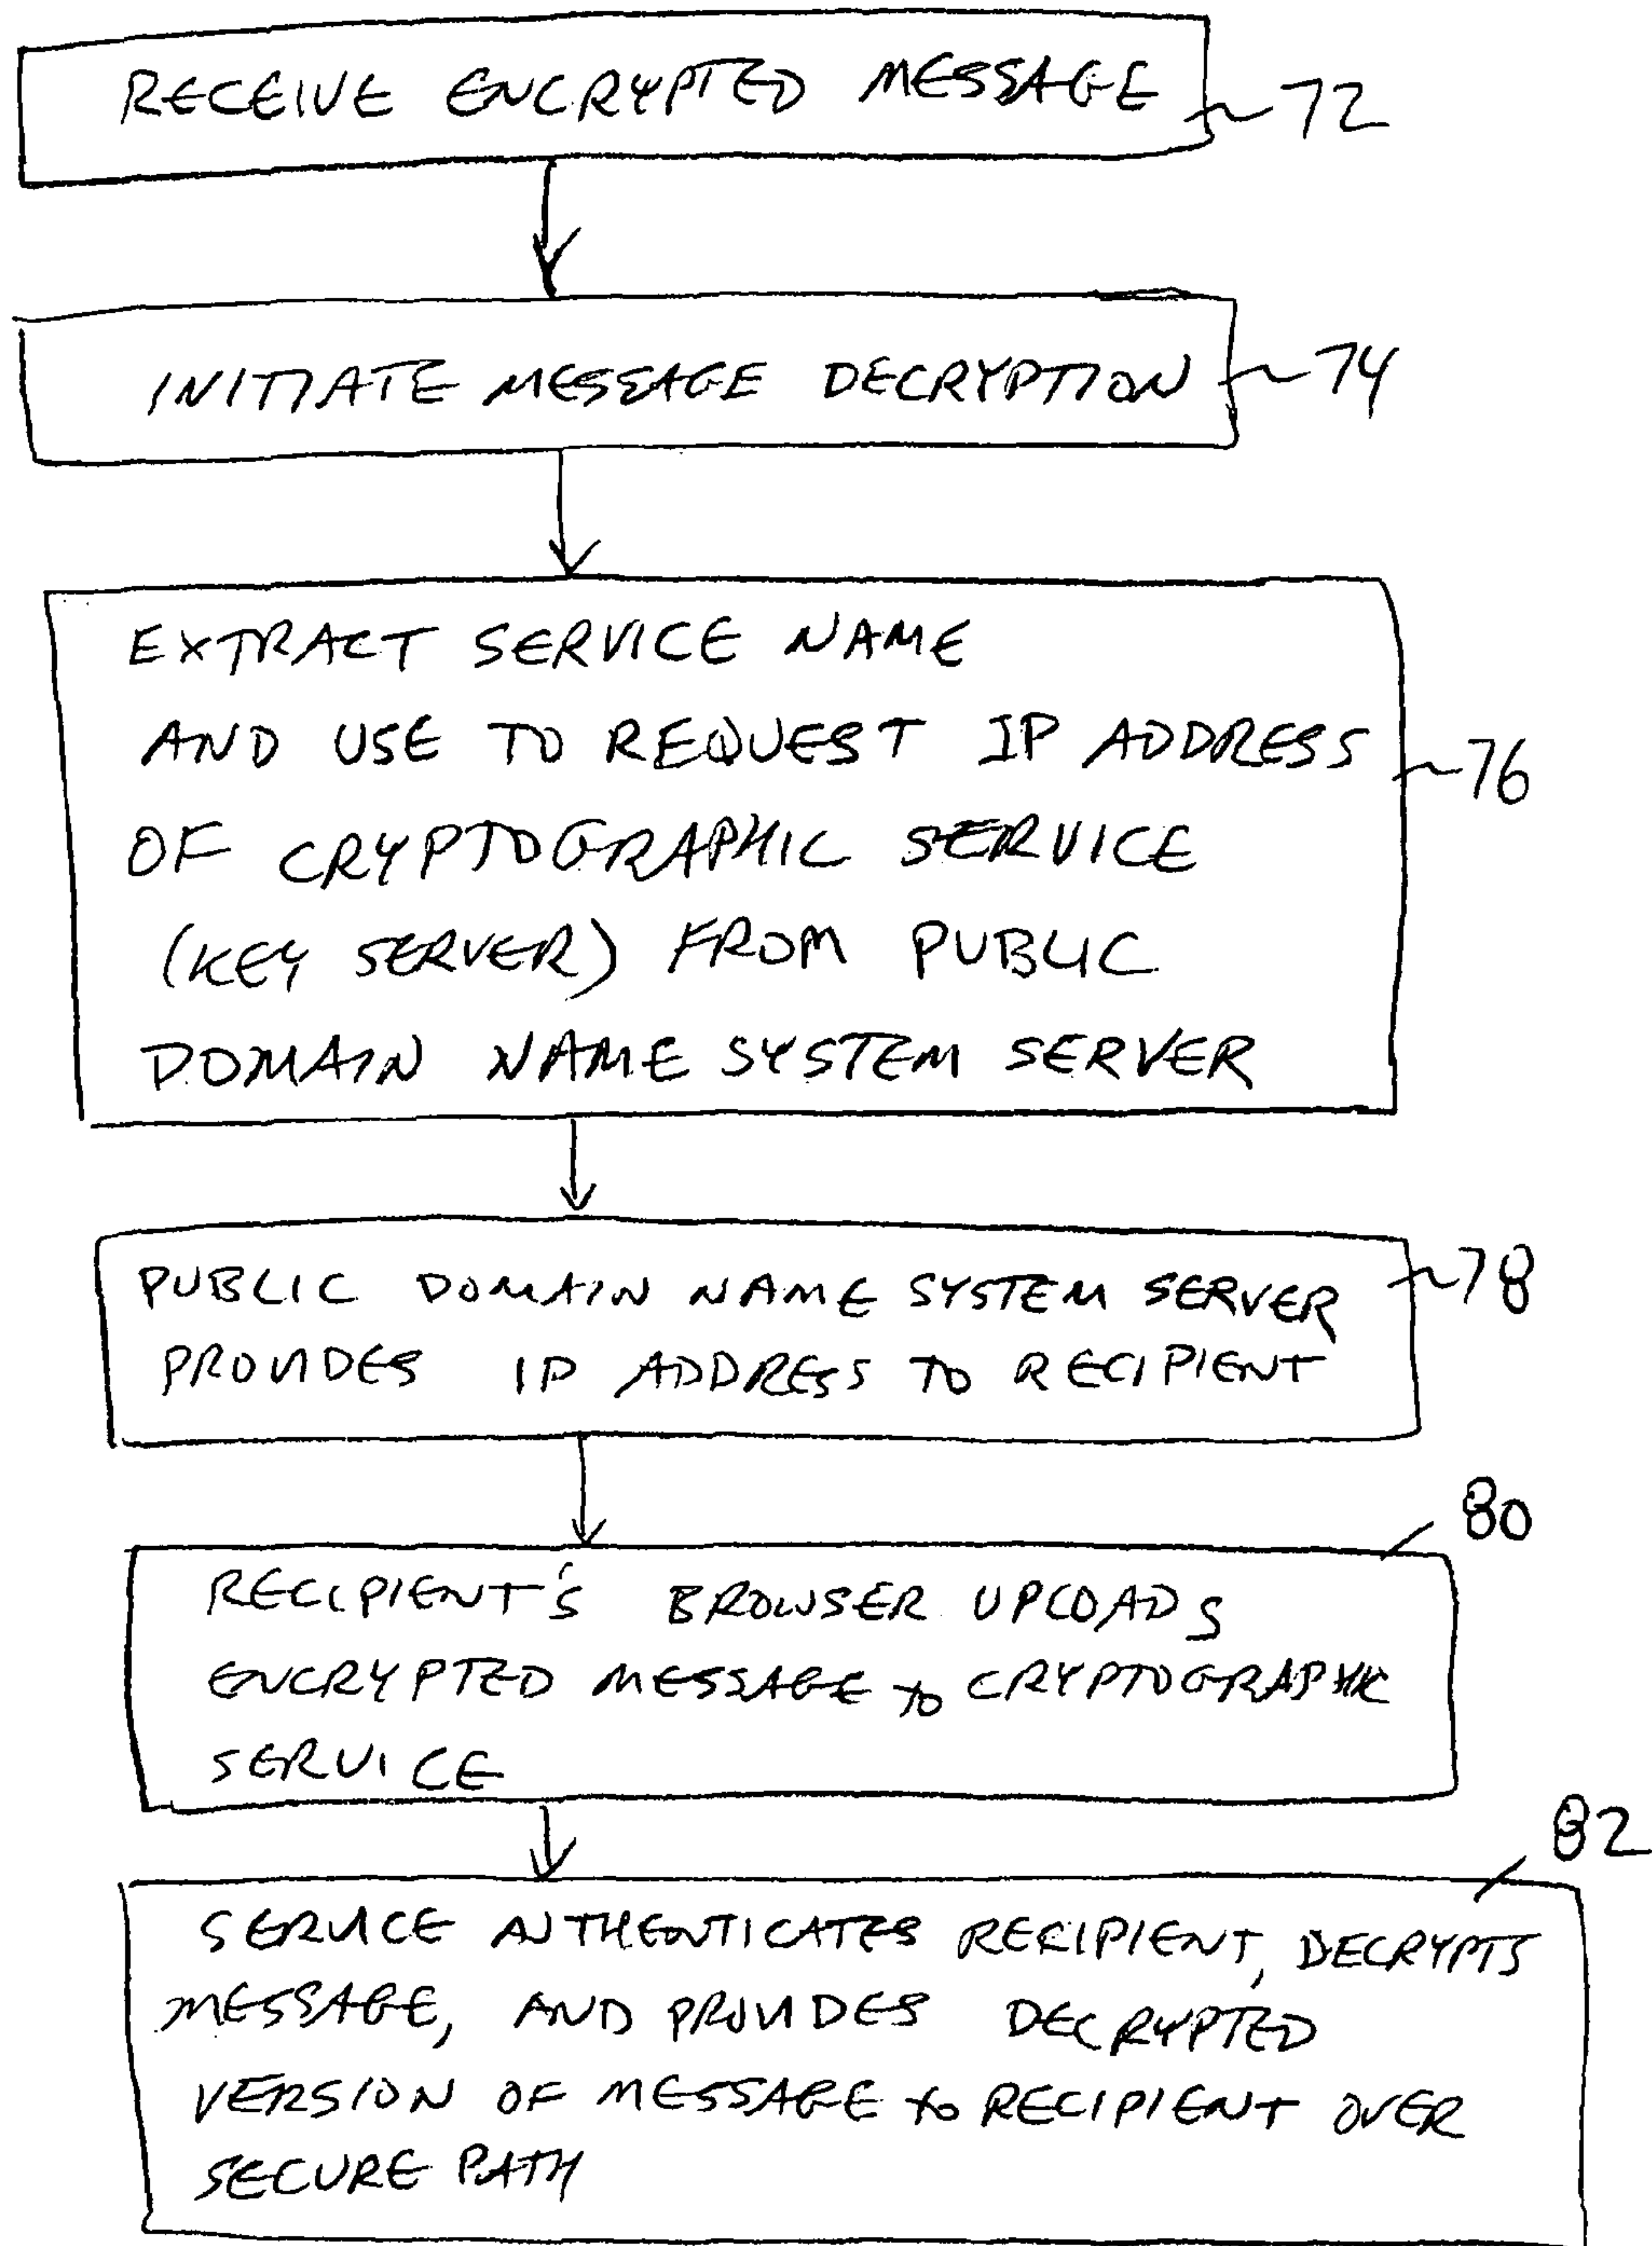 RECEIVE ENCRYPTED MESSAGE 72
INITIATE MESSAGE DECRYPTION 74
EXTRACT SERVICE NAME
AND USE TO REQUEST IP ADDRESS
76
OF CRYPTOGRAPHIC SERVICE
(KEY SERVER) FROM PUBLIC
DOMAIN NAME SYSTEM SERVER
PUBLIC DOMAIN NAME SYSTEM SERVER 78
PROVIDES IP ADDRESS TO RECIPIENT
80
RECIPIENT'S BROWSER UPLOADS
ENCRYPTED MESSAGE TO CRYPTOGRAPHIC
SERVICE
82
SERVICE AUTHENTICATES RECIPIENT, DECRYPTS
MESSAGE, AND PROVIDES DECRYPTED
VERSION OF MESSAGE TO RECIPIENT OVER
SECURE PATH